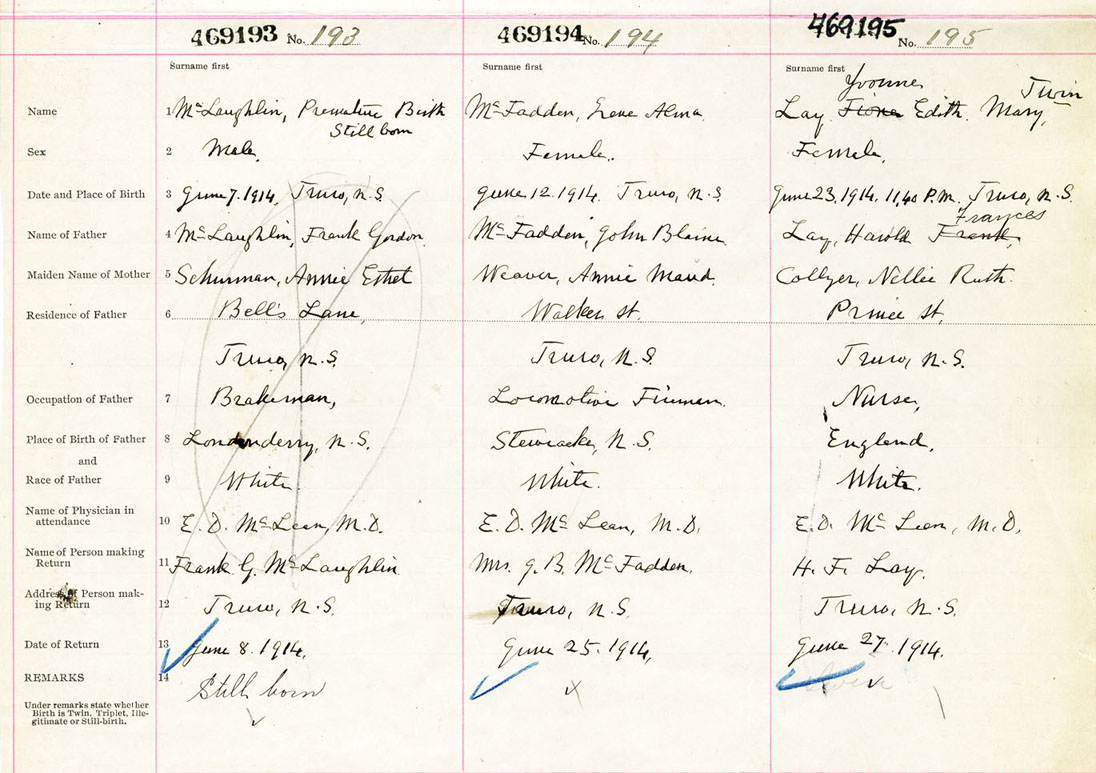 469193 No. 193 469194 No. 194 469195 No. 195
Surname first Surname first Surname first
Yvonne Twin
Name 1 McLaughlin, Premature Birth McFadden, Irene Alma. Lay, Fiona Edith Mary,
Still born
Sex 2 Male, Female. Female,
Date and Place of Birth 3 June 7. 1914, Truro, N.S. June 12. 1914. Truro, N.S. June 23, 1914. 11,40 P.M. Truro, N.S.
Frances
Name of Father 4 McLaughlin, Frank Gordon. McFadden, John Blaine. Lay, Harold Frank,
Maiden Name of Mother 5 Schurman, Annie Ethel Weaver, Annie Maud. Collyer, Nellie Ruth.
Residence of Father 6 Bell's Lane, Walker St. Prince St,
Truro, N.S. Truro, N.S. Truro, N.S.
Occupation of Father 7 Brakeman, Locomotive Fireman. Nurse,
Place of Birth of Father 8 Londonderry, N.S. Stewiacke, N.S. England,
and
Race of Father 9 White White. White.
Name of Physician in
attendance 10 E. D. McLean, M.D. E. D. McLean, M.D. E.D. McLean, M.D,
Name of Person making
Return 11 Frank G. McLaughlin Mrs. J. B. McFadden, H. F. Lay.
Address of Person mak-
ing Return 12 Truro, N.S. Truro, N.S. Truro, N.S.
Date of Return 13 June 8. 1914. June 25. 1914, June 27. 1914.
REMARKS 14 Still born Twin
Under remarks state whether
Birth is Twin, Triplet, Ille-
gitimate or Still-birth.